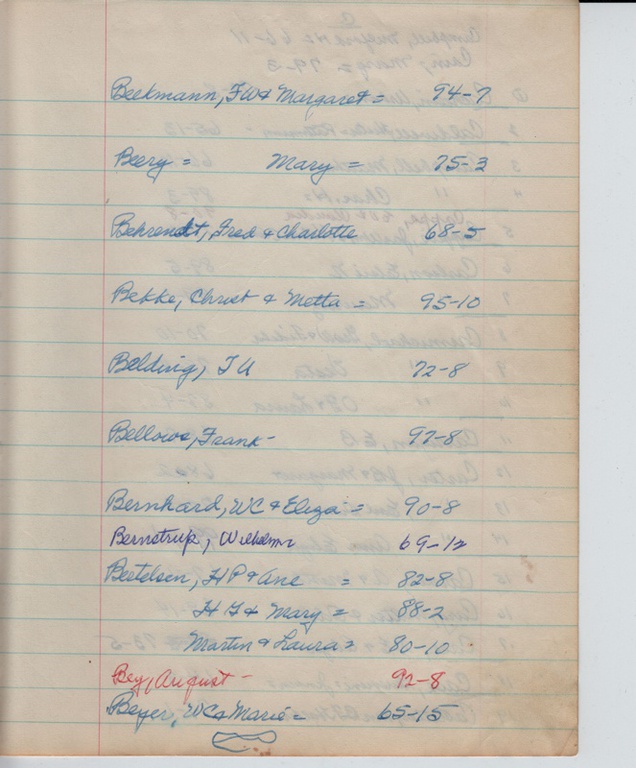 Beekmann, F W & Margaret = 94-7
Beery = Mary = 75-3
Behrendt, Fred & Charlotte 68-5
Bekke, Christ & Metta = 95-10
Belding, J A 72-8
Bellows, Frank - 97-8
Bernhard, WC & Eliza = 90-8
Bernstrup, Wilhelm 69-12
Bertelsen, H P & Ane = 82-8
H J & Mary = 88-2
Martin & Laura = 80-10
Bey, August - 92-8
Beyer, WC & Marie = 65-15